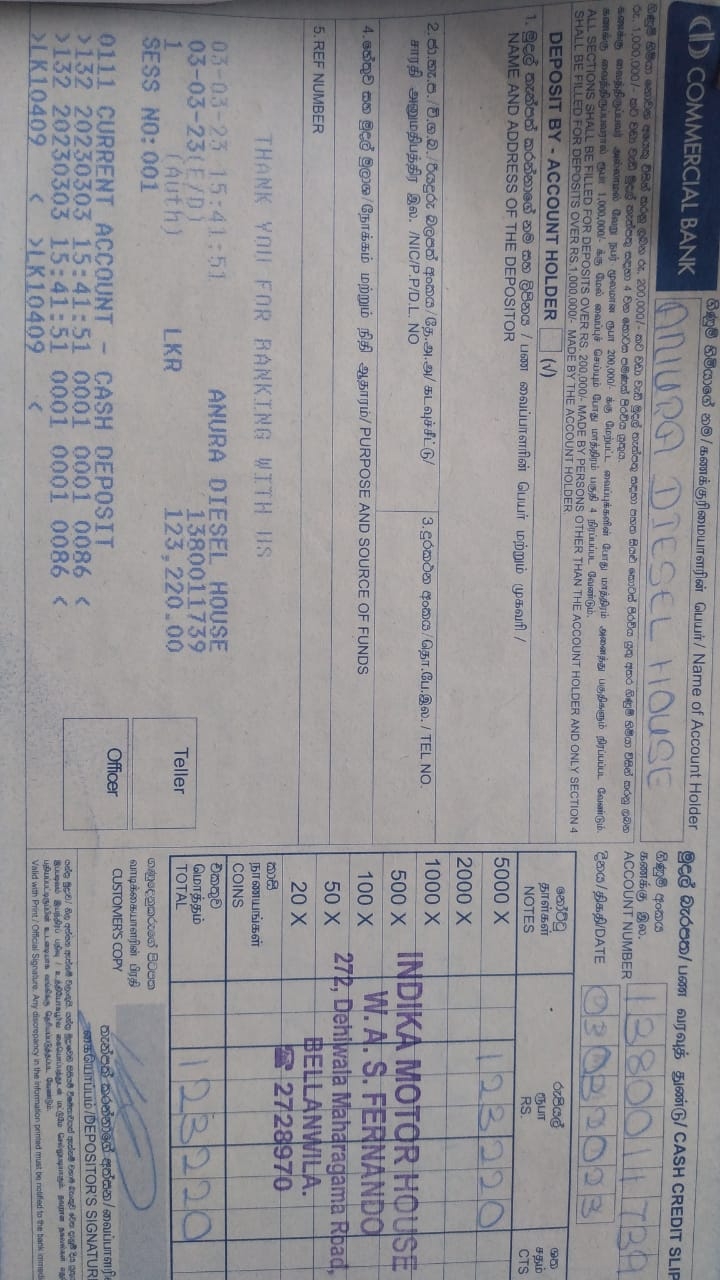 COMMERCIAL BANK
ගිණුම් හිමියාගේ නම / கணக்குரிமையாளரின் பெயர் / Name of Account Holder
ANURA DIESEL HOUSE
ALL SECTIONS SHALL BE FILLED FOR DEPOSITS OVER RS. 200,000/- MADE BY PERSONS OTHER THAN THE ACCOUNT HOLDER AND ONLY SECTION 4
SHALL BE FILLED FOR DEPOSITS OVER RS.1,000,000/- MADE BY THE ACCOUNT HOLDER
DEPOSIT BY - ACCOUNT HOLDER (√)
1. මුදල් තැන්පත් කරන්නාගේ නම සහ ලිපිනය / பண வைப்பாளரின் பெயர் மற்றும் முகவரி /
NAME AND ADDRESS OF THE DEPOSITOR
2. ජා.හැ.ප. / වී.ග.බ. / රියදුරු බලපත් අංකය / தே.அ.அ / கடவுச்சீட்டு /
சாரதி அனுமதிபத்திர இல. /NIC/P.P/D.L. NO
3. දුරකථන අංකය / தொ.பே.இல. / TEL NO.
4. හේතුව සහ මුදල් මූලාශ්‍ර / நோக்கம் மற்றும் நிதி ஆதாரம் / PURPOSE AND SOURCE OF FUNDS
5. REF NUMBER
THANK YOU FOR BANKING WITH US
03-03-23 15:41:51 ANURA DIESEL HOUSE
03-03-23(E/D) 1380011739
1 (Auth) LKR 123,220.00
SESS NO:001
0111 CURRENT ACCOUNT - CASH DEPOSIT
>132 20230303 15:41:51 0001 0001 0086 <
>132 20230303 15:41:51 0001 0001 0086 <
>LK10409 < >LK10409 <
Teller
Officer
මුදල් බැරපත / பண வரவுத் துண்டு / CASH CREDIT SLIP
ගිණුම් අංකය
கணக்கு இல.
ACCOUNT NUMBER
1380011739
දිනය / திகதி / DATE
නෝට්ටු
தாள்கள்
NOTES
රුපියල්
ரூபா
RS.
ශත
சதம்
CTS
5000 X
2000 X
1000 X
500 X
100 X
50 X
20 X
INDIKA MOTOR HOUSE
W. A. S. FERNANDO
272, Dehiwala Maharagama Road,
BELLANWILA.
☎ 2728970
කාසි
நாணயங்கள்
COINS
එකතුව
மொத்தம்
TOTAL
123220
ගනුදෙනුකරුගේ පිටපත
வாடிக்கையாளரின் பிரதி
CUSTOMER'S COPY
තැන්පත් කරන්නාගේ අත්සන / வைப்பாளரின்
கையொப்பம் / DEPOSITOR'S SIGNATURE
Valid with Print / Official Signature. Any discrepancy in the information printed must be notified to the bank